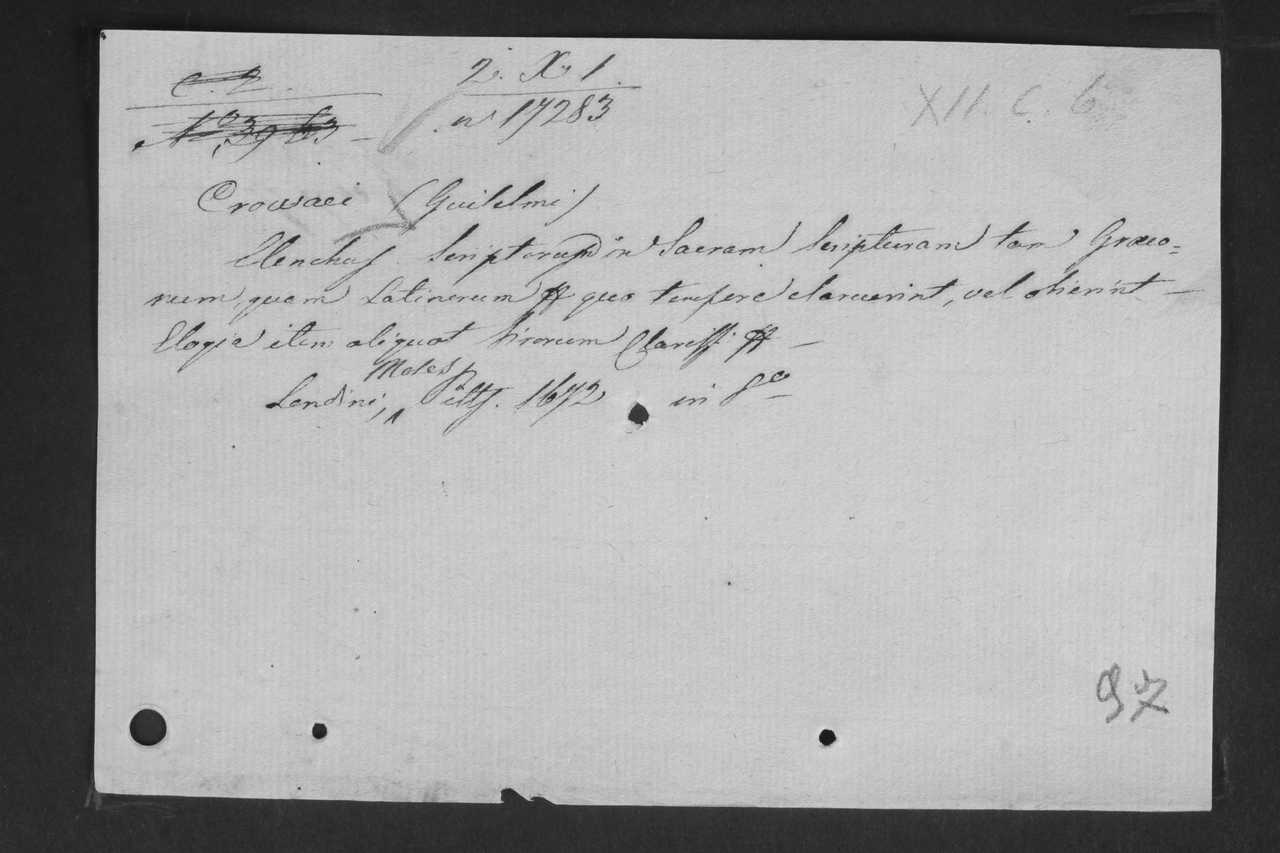 C. 2. 2. X. 1.
No. 3963 n. 17283
XII. C. 6
Crowaei (Guilelmi)
Elenchus Scriptorum in Sacram Scripturam tam Graeco=
rum, quam Latinorum & quo tempore claruerint, vel obierint —
Elogia item aliquot Virorum Clariss. & —
Londini, Moses Pitts. 1672 in 8o
97